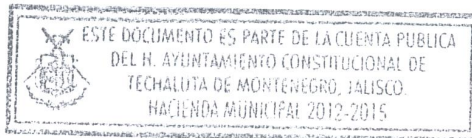 ESTE DOCUMENTO ES PARTE DE LA CUENTA PUBLICA
DEL H. AYUNTAMIENTO CONSTITUCIONAL DE
TECHALUTA DE MONTENEGRO, JALISCO.
HACIENDA MUNICIPAL 2012-2015